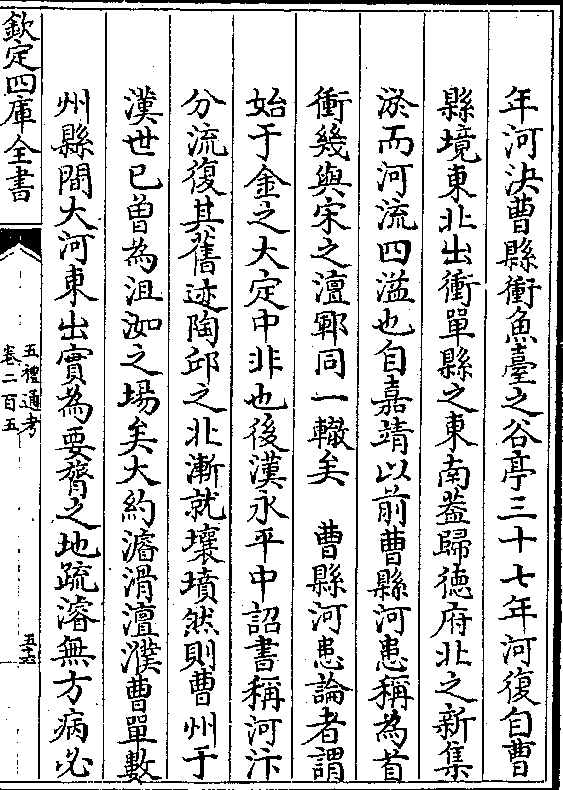 年河決曹縣衝魚臺之谷亭三十七年河復自曹
縣境東北出衝單縣之東南葢歸徳府北之新集
淤而河流四溢也自嘉靖以前曹縣河患稱為首
衝幾與宋之澶鄆同一轍矣　曹縣河患論者謂
始于金之大定中非也後漢永平中詔書稱河汴
分流復其舊迹陶邱之北漸就壤墳然則曹州于
漢世已曽為沮洳之場矣大約濬滑澶濮曹單數
州縣間大河東出實為要膂之地疏濬無方病必
欽定四庫全書
五禮通考
卷二百五